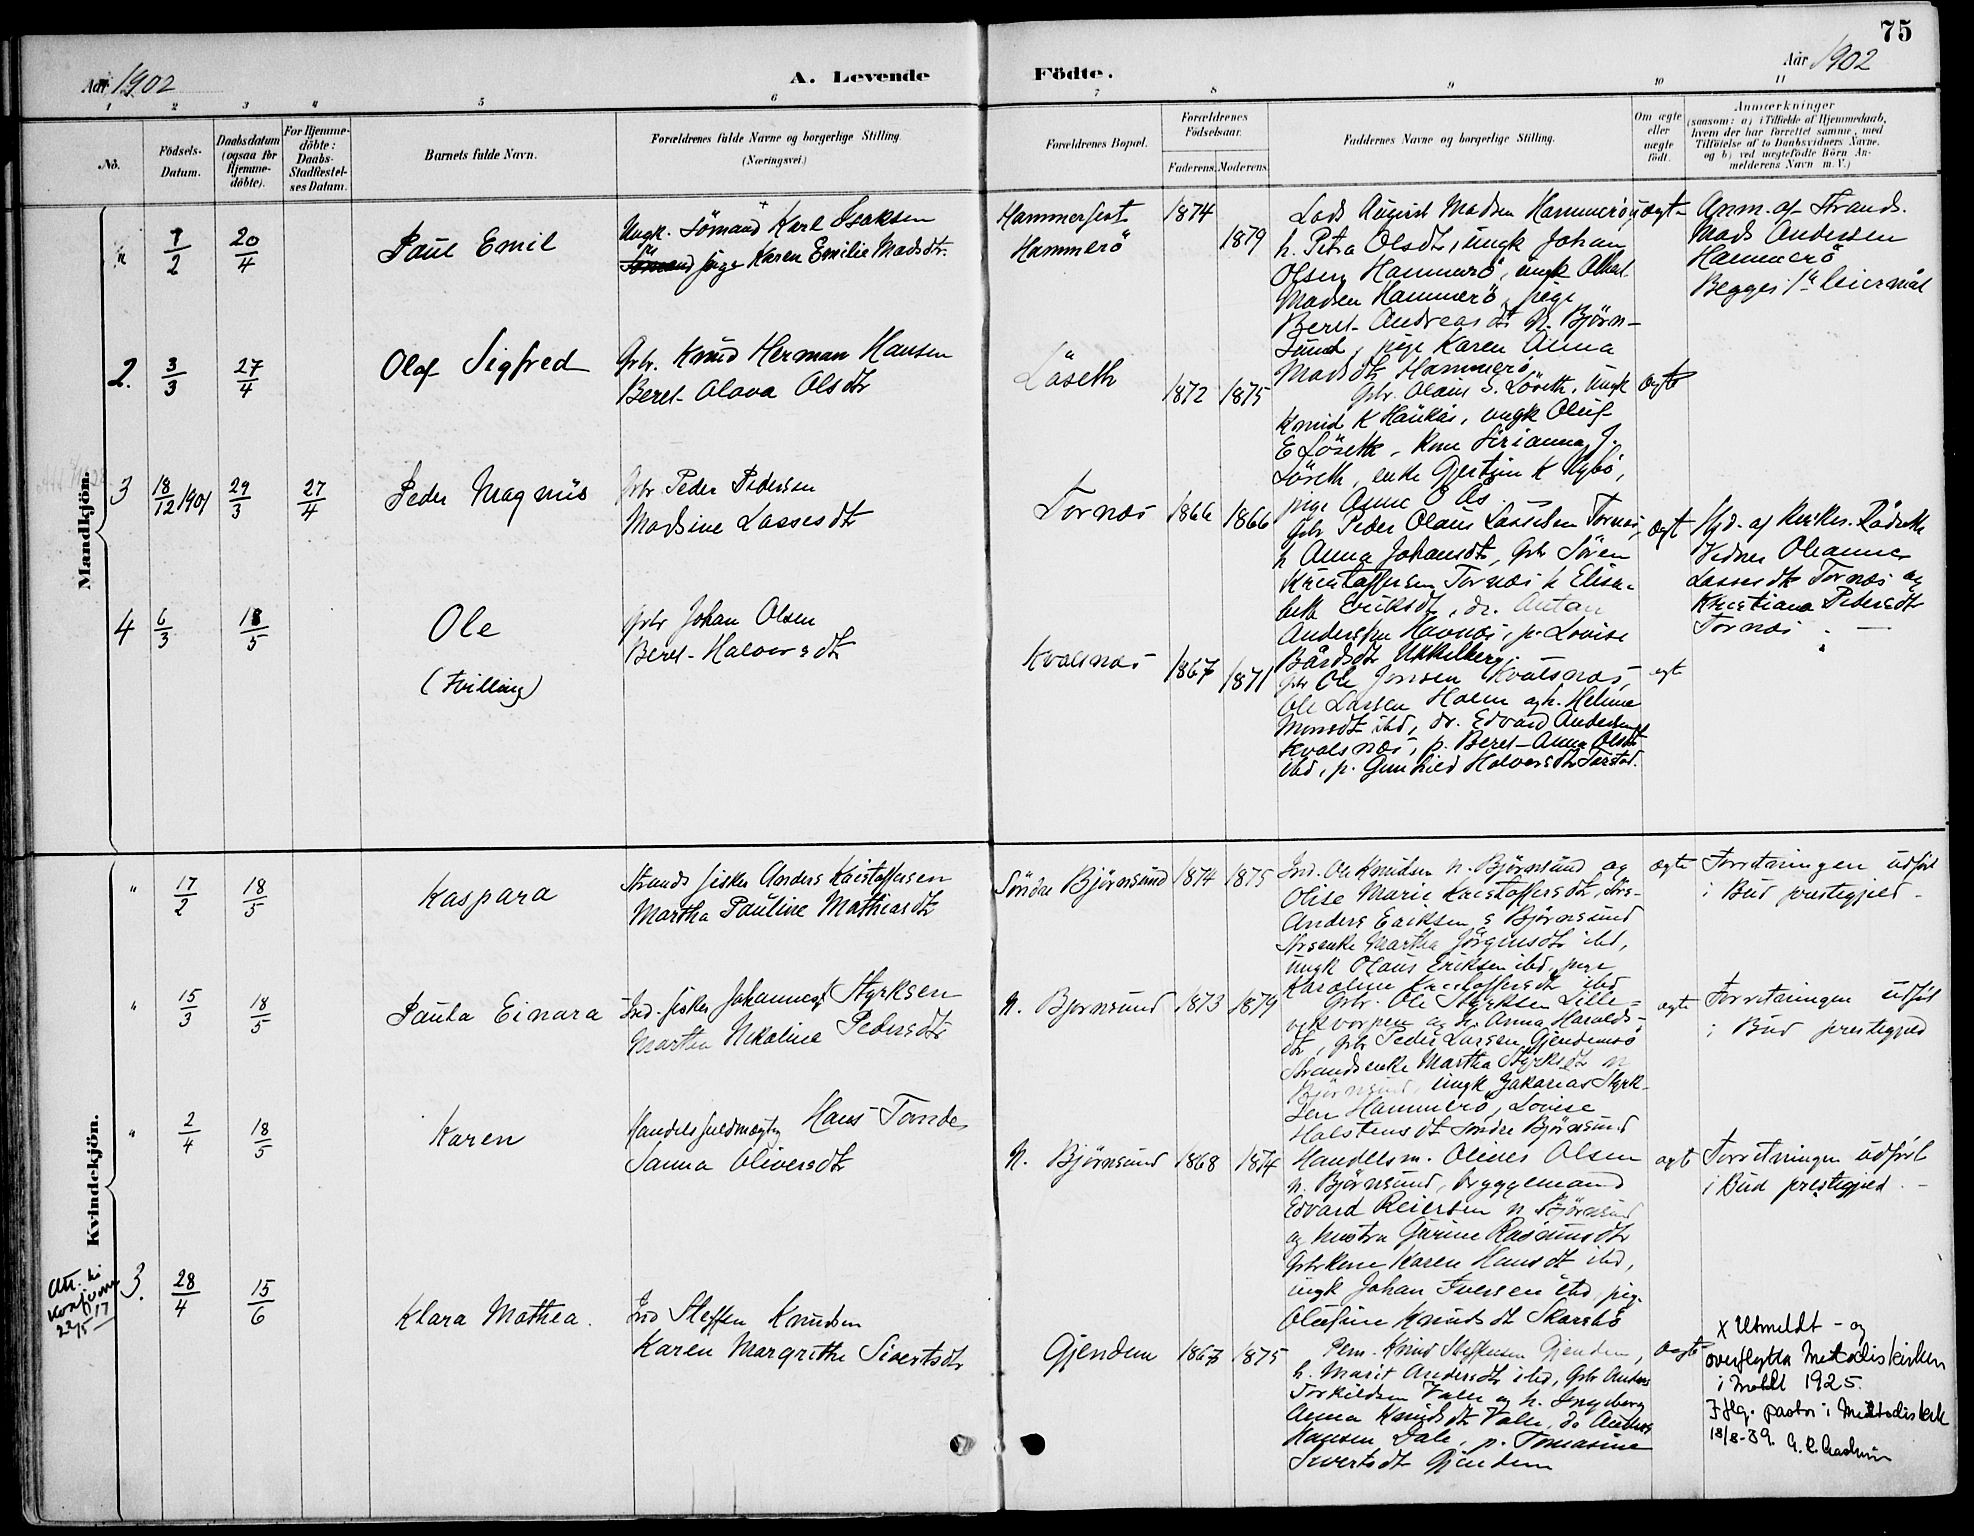 75
Aar 1902
A. Levende Födte.
Aar 1902
1 2 3 4 5 6 7 8 9 10 11
No.
Födsels-Datum.
Daabsdatum (ogsaa for Hjemme-döbte).
For Hjemme-döbte: Daabs-Stadfæstel-ses Datum.
Barnets fulde Navn.
Forældrenes fulde Navne og borgerlige Stilling.
(Næringsvei.)
Forældrenes Bopæl.
Forældrenes Födselsaar.
Faderens. Moderens.
Faddernes Navne og borgerlige Stilling.
Om ægte eller uægte födt.
Anmærkninger
(saasom: a) i Tilfælde af Hjemmedaab,
hvem der har forrettet samme, med
Tilföielse af to Daabsvidners Navne,
og b) ved uægtefödte Börn An-
melderens Navn m. V.)
Mandkjön.
" 7/2 20/4 Paul Emil
Ungk. Sömand Karl Isaksen
pige Karen Emilie Madsdtr.
Hammerfest 1874
Hammerö 1879
Lods August Madsen Hammeröy
h. Petra Olsdt, ungk Johan
Olsen Hammerö, ungk
Madsen Hammerö, pige
Beret Andreasdt N. Björn-
sund, pige Karen Anna
Madsdt Hammerö
uægte
Anm. af Strands.
Mads Andersen
Hammerö
Begges 1ste leiermål
2. 3/3 27/4 Olaf Sigfred
Gbr. Knud Herman Hansen
Beret Olava Olsdtr
Löseth 1872 1875
Gbr. Olaus S. Löseth, ungk
Knud K Haukås, ungk Oluf
E Löseth, kone J.
Löseth, enke K Nybö,
pige Anne O Ås
ægte
3 18/12 1901 29/3 27/4 Peder Magnus
Gbr Peder Pedersen
Madsine Lassesdtr
Tornæs 1866 1866
Gbr. Peder Olaus Lassesen Tornæs,
h Anna Johansdt, Gbr Sören
Kristoffersen Tornæs h Elisa-
beth Eriksdt, dr. Anton
Andersen Havnæs, p. Lovise
Bårdsdt Ukkelberg
ægt
Hjd. af kirkes. Rödseth
Vidner Oleanna
Lassesdt Tornæs og
Kristiana Pedersdt
Tornæs. —
4 6/3 18/5 Ole
(tvilling)
Gbr Johan Olsen
Beret Halvorsdtr
Kvalsnæs 1867 1871
Gbr Ole Jonsen Kvalsnæs,
Ole Larsen Holm og h. Heline
Monsdt ibd, dr. Edvard Andersen
Kvalsnæs, p. Beret Anna Olsdt
ibd, p. Gunhild Halvorsdt Tarstad.
egt
Kvindekjön.
" 17/2 18/5 Kaspara
Strands fisker Anders Kristoffersen
Martha Pauline Mathiasdtr
Söndre Björnsund 1874 1875
Ind. Ole Knudsen n. Björnsund og
Olise Marie Kristoffersdt,
Anders Eriksen s Björnsund
Strsenke Martha Jörgensdt ibd,
ungk Olaus Eriksen ibd, pige
Karoline Kristoffersdt ibd
ægte
Forretningen udfört
i Bud prestegjeld –
" 15/3 18/5 Paula Einara
Ind. fisker Johannes Styrksen
Martha Nikoline Pedersdtr
N. Bjornsund 1873 1879
Gbr. Ole Styrksen Lille-
og h. Anna Harolds-
dt, Gbr Peder Larsen Gjendemsö
Strandsenke Martha Styrksdt n
Björnsund, ungk Zakarias Styrk-
sen Hammerö, Lovise
Holstensdt söndre Björnsund
ægte
Forretningen udfört
i Bud prestegjeld
" 2/4 18/5 Karen
Handelsfuldmægtig Hans Tande
Sanna Oliversdtr
N. Björnsund 1868 1874
Handelsm. Oliver Olsen
n. Björnsund, bryggemand
Edvard Reiersen n Björnsund
og hustru Gurine Rasmusdtr
Gbrkone Karen Hansdt ibd,
ungk Johan Iversen ibd, pige
Olufine Knudsdt Skarsbö
ægte
Forretningen udfört
i Bud prestegjeld –
Att. til
konfirm
22/5 17
3. 28/4 15/6 Klara Mathea.
Ind Steffen Knudsen
Karen Margrethe Sivertsdt
Gjendem 1867 1875
Pens. Knud Steffensen Gjendem,
h. Marit Andersdt ibd, Gbr Anders
Torkildsen Valle og h. Ingeborg
Anna Knudsdt Valle, dr Anders
Hansen Dale, p. Tomasine
Sivertsdt Gjendem
ægte
x Utmeldt – og
overflytta Metodiskirken
i Molde 1925.
Iflg. pastor i Metodiskirk
18/8-39.